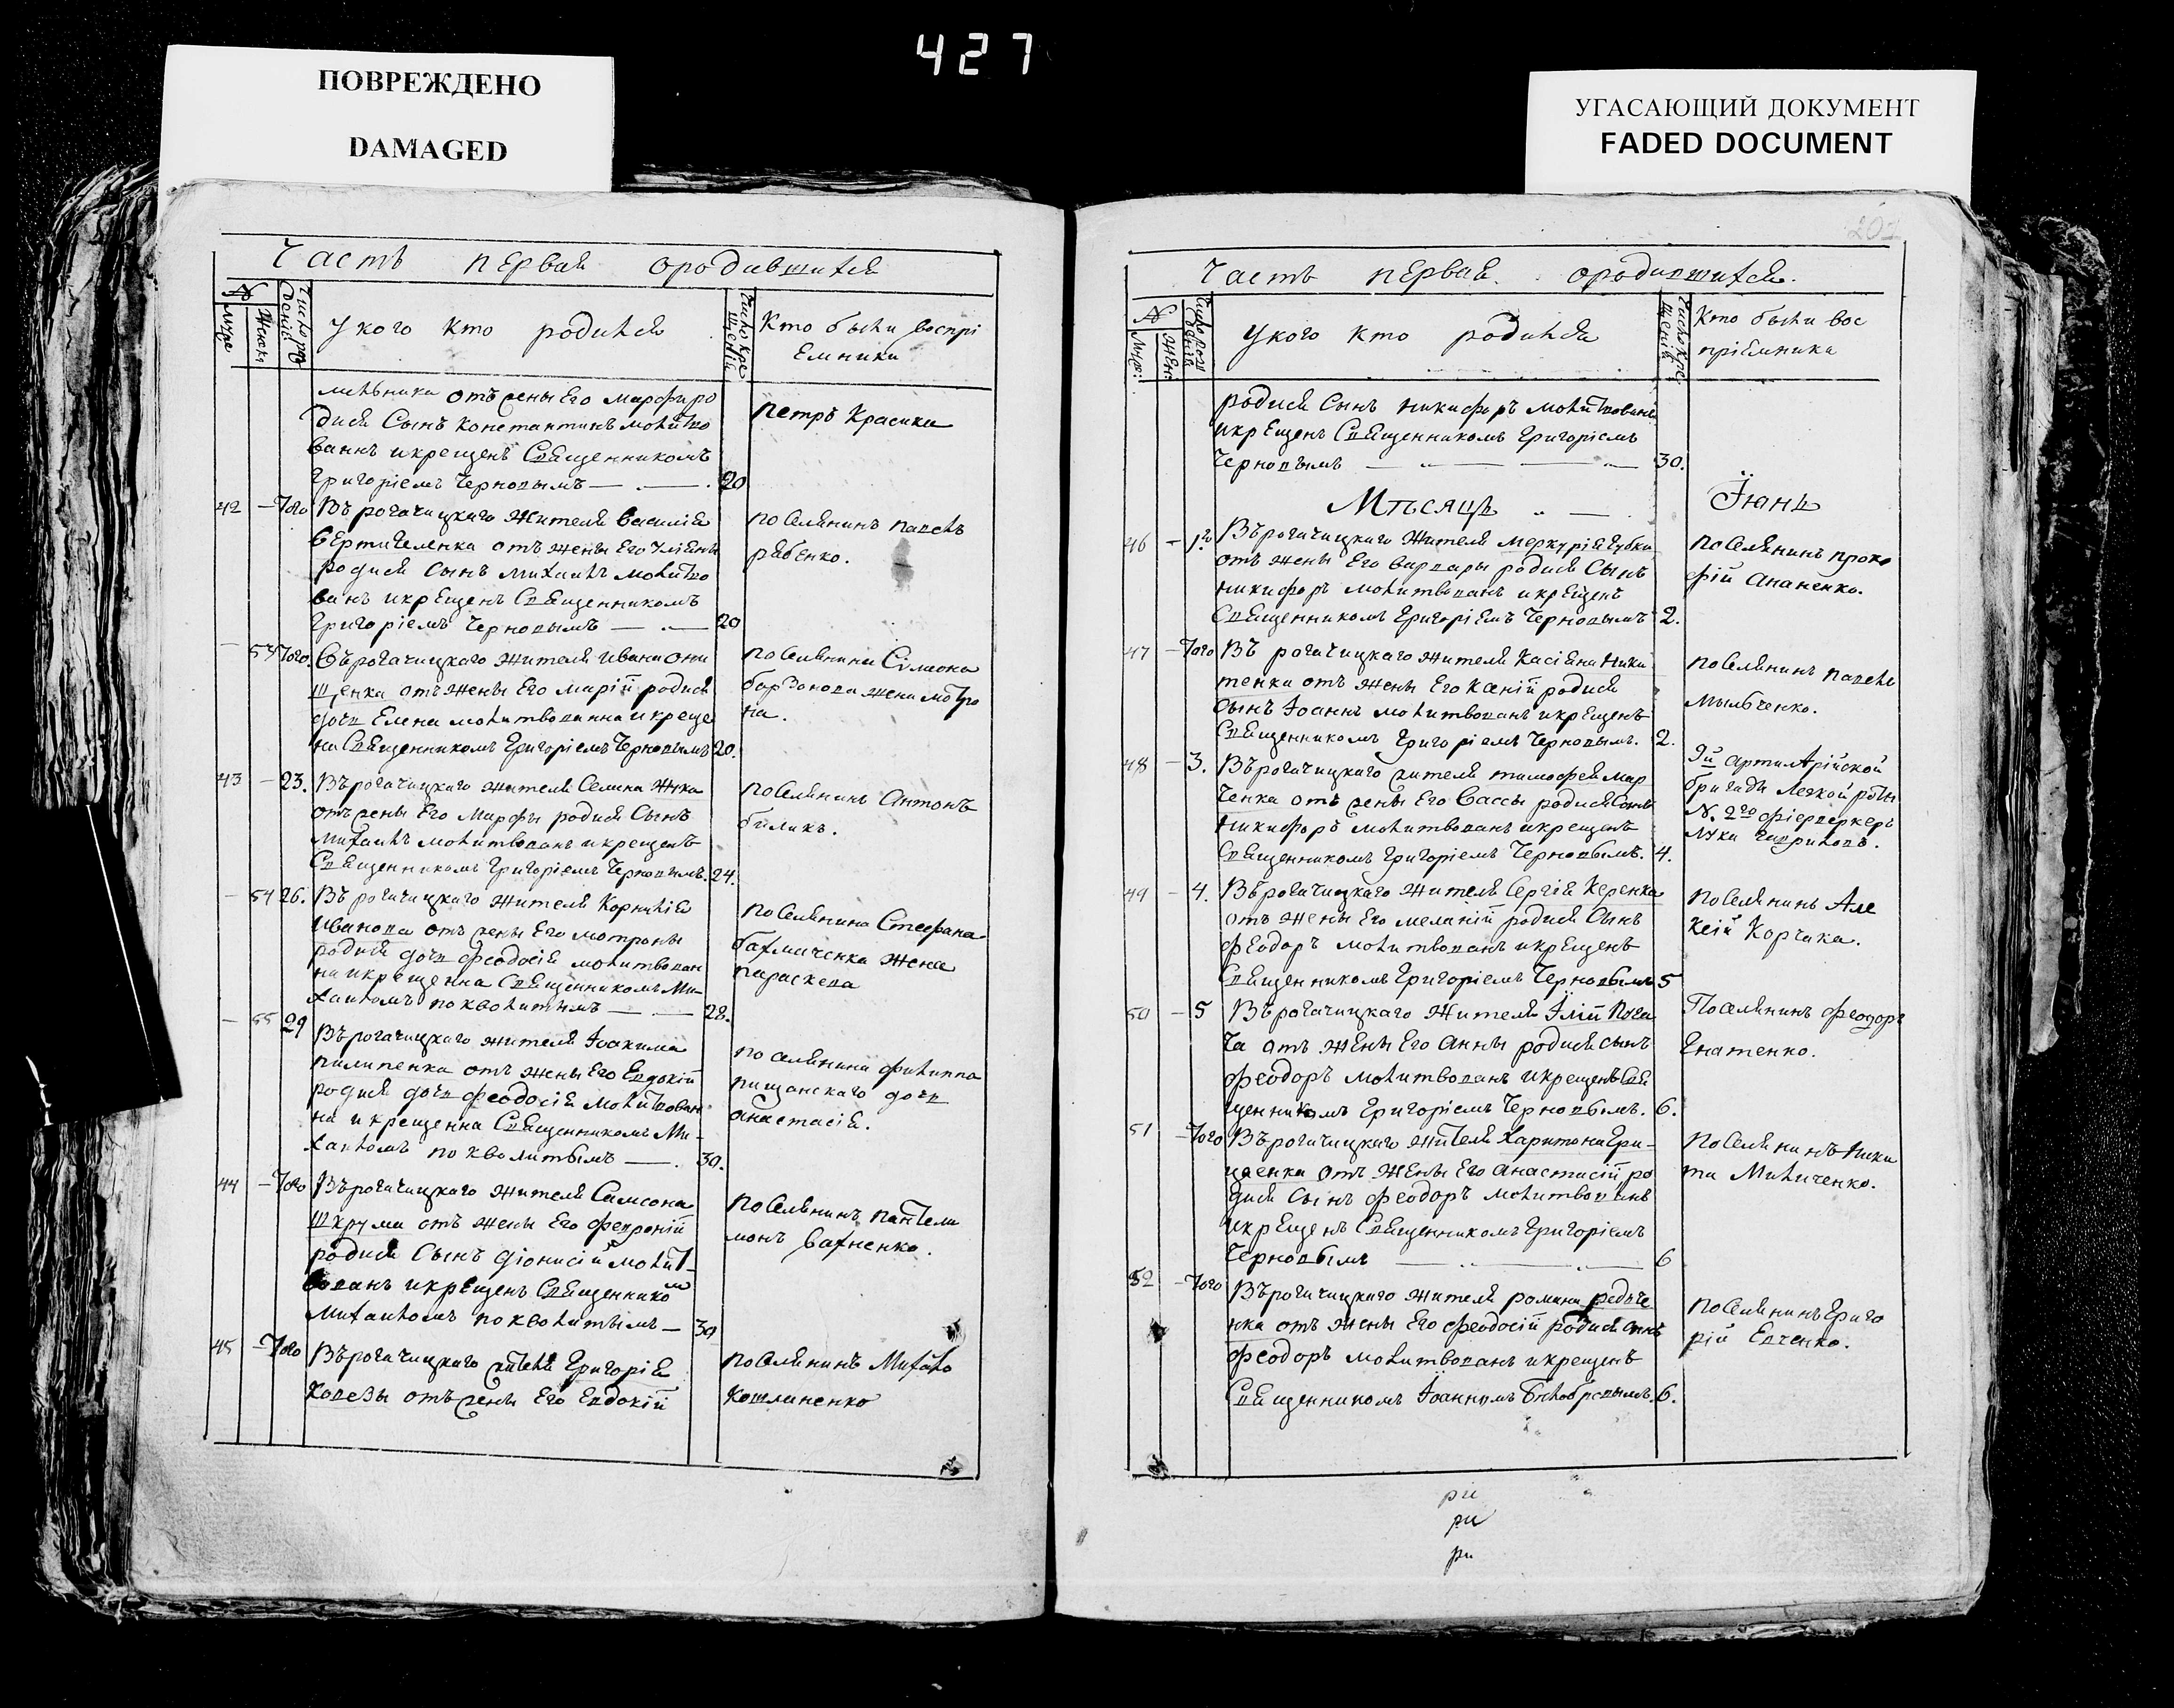 427
ПОВРЕЖДЕНО
DAMAGED
УГАСАЮЩИЙ ДОКУМЕНТ
FADED DOCUMENT
Часть первая ородившихся
№
Муже
Женск
Число рож
денія
У кого кто родился
Число кре
щенія
Кто были воспрі
емники
отъ жены его Марфы ро
дился Сынъ Константинъ молитво
ванъ и крещенъ Священникомъ
Григоріемъ Черновымъ — 20
Петръ Красика
42 – Того Въ рогачицкаго жителя Василія
Вертителенка отъ жены его Уліяны
родился Сынъ Михаилъ молитво
ванъ и крещенъ Священникомъ
Григоріемъ Черновымъ — 20
поселянинъ павелъ
рябенко.
– 53 Того Въ рогачицкаго жителя Ивана Они
щенка отъ жены его Маріи родися
дочь Елена молитвованна и креще
на Священникомъ Григоріемъ Черновымъ 20.
поселянина Сімеона
жена мотро
на.
43 – 23. Въ рогачицкаго жителя
отъ жены его Марфы родися Сынъ
Михаилъ молитвованъ и крещенъ
Священникомъ Григоріемъ Черновымъ. 24.
поселянинъ Антонъ
биликъ.
– 54 26. Въ рогачицкаго жителя Корнилія
Иванова отъ жены его мотроны
родися дочь феодосія молитвован
на и крещенна Священникомъ Ми
хаиломъ поквалитымъ — 28.
поселянина Стефана
бахмаченка жена
параскева
– 55 29 Въ рогачицкаго жителя Іоакима
пилипенка отъ жены его Евдокіи
родися дочь феодосія молитвован
на и крещенна Священникомъ Ми-
хаиломъ поквалитымъ — 30.
поселянина филиппа
пищанскаго дочь
анастасія.
44 – Того Въ рогачицкаго жителя Самсона
Шкрума отъ жены его февроніи
родися Сынъ діонисій молит-
вованъ и крещенъ Священнико
м
Михаиломъ поквалитымъ — 30
поселянинъ пантели
монъ Вахненко.
45 – Того Въ рогачицкаго жителя Григорія
Ковезы отъ жены его Евдокіи
поселянинъ Михайло
Кошлиненко
207
Часть первая ородившихся.
№
Муж:
Жен:
Число рож
денія
У кого кто родился
Число кре
щенія
Кто были вос
пріемники
родися Сынъ никифоръ молитвованъ
и крещенъ Священникомъ Григоріемъ
Черновымъ — 30.
Мѣсяць Іюнь
46 – 1го Въ рогачицкаго жителя меркурія Губки
отъ жены его варвары родися Сынъ
никифоръ молитвованъ и крещенъ
Священникомъ Григоріемъ Черновымъ 2.
поселянинъ проко
фій Ананенко.
47 – Того Въ рогачицкаго жителя Касіяна Ники
тенка отъ жены его Ксеніи родися
сынъ Іоаннъ молитвованъ и крещенъ
Священникомъ Григоріемъ Черновымъ. 2.
поселянинъ павелъ
48 – 3. Въ рогачицкаго жителя тимофея Мар
ченка отъ жены его Вассы родися Сынъ
никифоръ молитвованъ и крещенъ
Священникомъ Григоріемъ Черновымъ. 4.
9й артилерійской
бригады легкой роты
№ 2го фіерверкеръ
Лука Гавриловъ.
49 – 4. Въ рогачицкаго жителя Сергія Керенка
отъ жены его меланіи родися Сынъ
феодоръ молитвованъ и крещенъ
Священникомъ Григоріемъ Черновымъ 5
поселянинъ Але
ксій Корчака.
50 – 5 Въ рогачицкаго жителя Іліи Пуга
ча отъ жены его Анны родися сынъ
феодоръ молитвованъ и крещенъ Свя
щенникомъ Григоріемъ Черновымъ. 6.
Поселянинъ феодоръ
Гнатенко.
51 – Того Въ рогачицкаго жителя Харитона Гри-
ценка отъ жены его Анастасіи ро
дися Сынъ феодоръ молитвованъ
и крещенъ Священникомъ Григоріемъ
Черновымъ — 6
поселянинъ Ники
та Миличенко.
52 – Того Въ рогачицкаго жителя романа редьче
нка отъ жены его феодосіи родися сынъ
феодоръ молитвованъ и крещенъ
Священникомъ Іоанномъ Бѣлобровымъ. 6.
поселянинъ Григо
рій Евченко.
ри
ри
ри